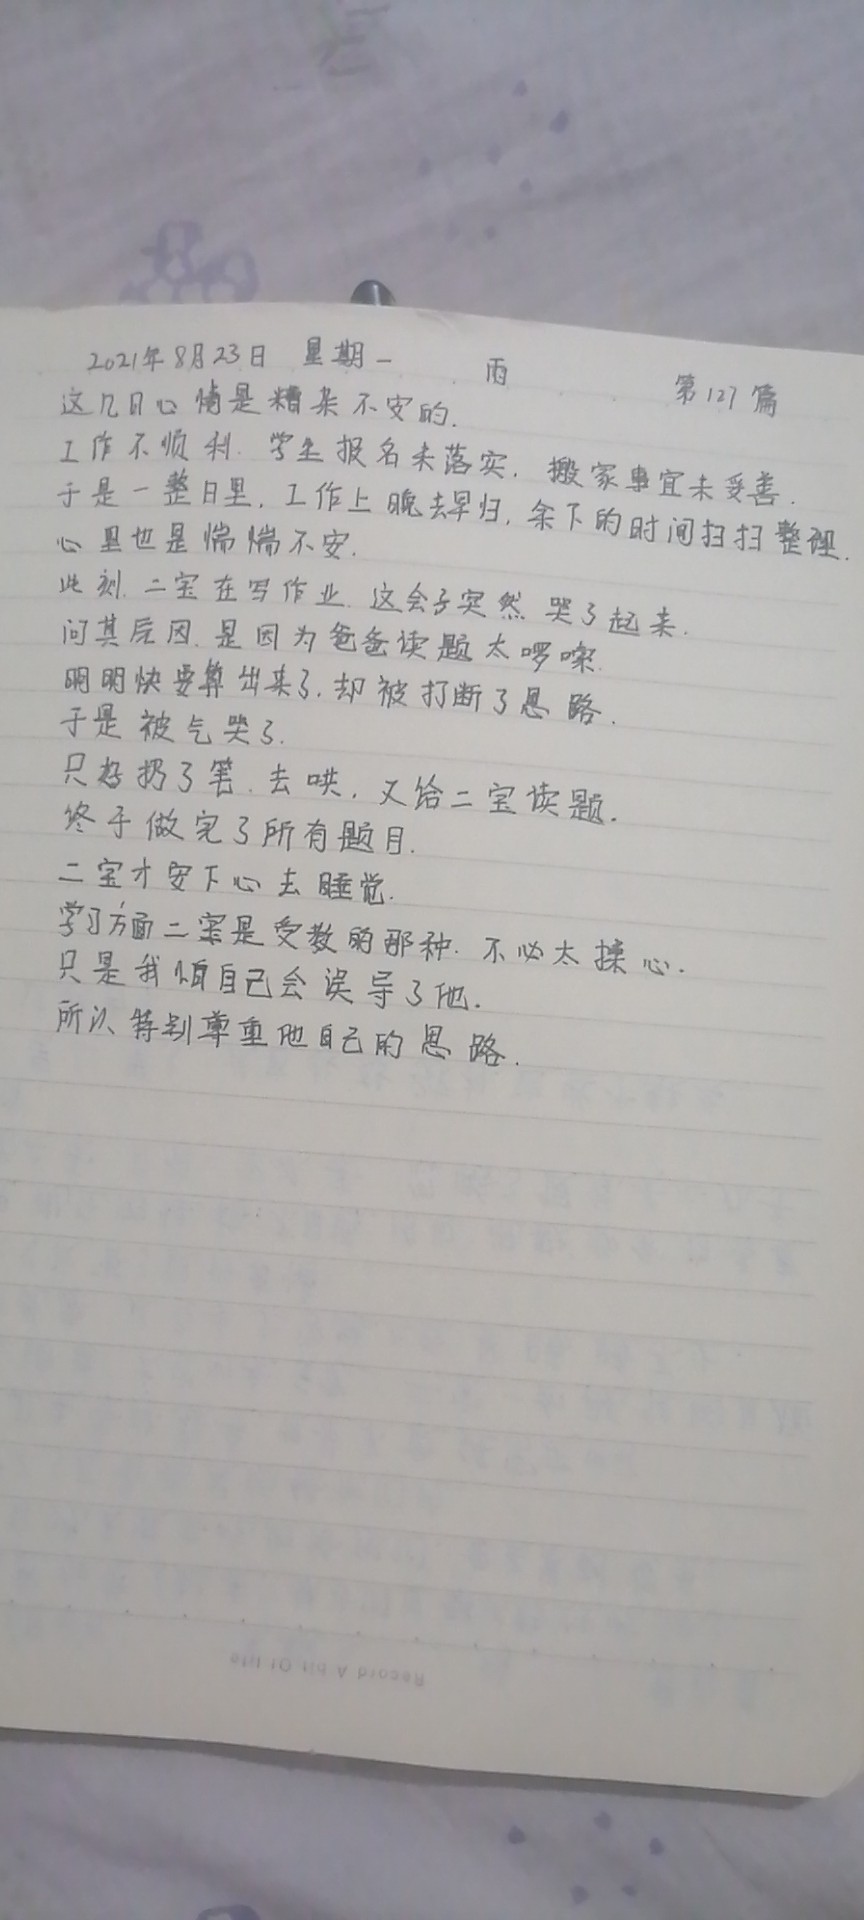 2021年8月23日 星期一 雨 第127篇
这几日心情是糟杂不安的.
工作不顺利. 学生报名未落实. 搬家事宜未妥善.
于是一整日里. 工作上晚去早归. 余下的时间扫扫整理.
心里也是惴惴不安.
此刻. 二宝在写作业. 这会子突然哭了起来.
问其原因. 是因为爸爸读题太啰嗦.
明明快要算出来了. 却被打断了思路.
于是被气哭了.
只好扔了笔. 去哄. 又给二宝读题.
终于做完了所有题目.
二宝才安下心去睡觉.
学习方面二宝是受教的那种. 不必太操心.
只是我怕自己会误导了他.
所以特别尊重他自己的思路.
Record A bit Of life